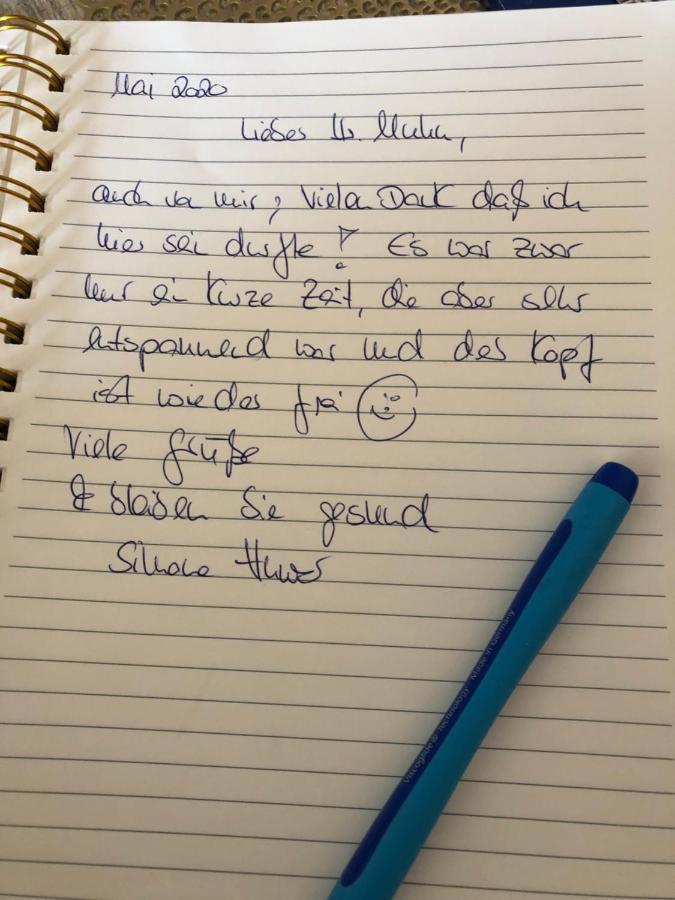 Mai 2020
Lieber Hr.
auch von mir, Vielen Dank daß ich
hier sein durfte! Es war zwar
nur ein kurze Zeit, die aber sehr
entspannend war und der Kopf
ist wieder frei
Viele Grüße
& bleiben Sie gesund
Simone
Viscoglide® Technology Made in Germany